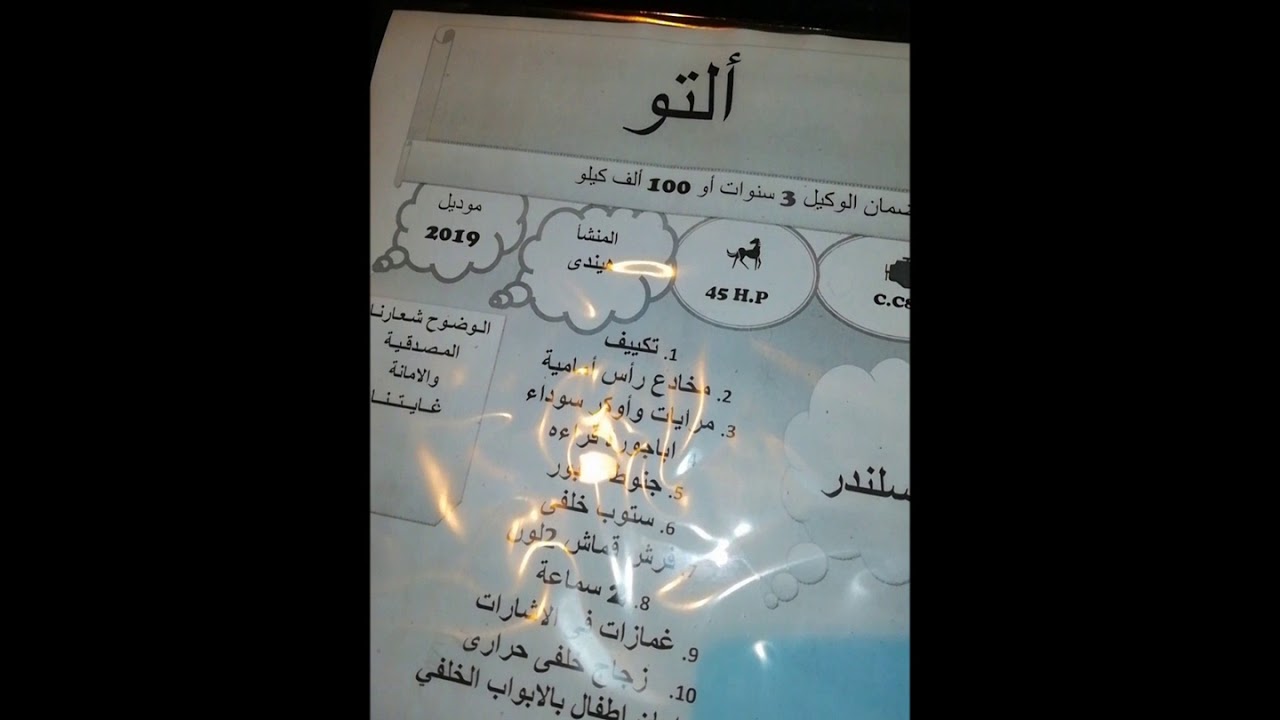 ألتو
ضمان الوكيل 3 سنوات أو 100 ألف كيلو
C.C8
45 H.P
المنشأ
هيندى
موديل
2019
الوضوح شعارنا
المصدقية
والامانة
غايتنا
1. تكييف
2. مخادع رأس أمامية
3. مرايات وأوكر سوداء
اباجورة قراءه
5. جنوط
6. ستوب خلفى
7. فرش قماش 2لون
8. 2 سماعة
9. غمازات فى الاشارات
10. زجاج خلفى حرارى
اطفال بالابواب الخلفي
سلندر